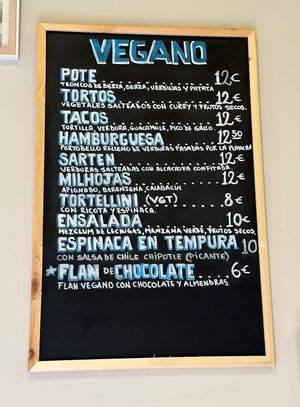 VEGANO
POTE 12€
TRONCOS DE BERZA, BERZA, VERDINAS Y PATATA
TORTOS 12€
VEGETALES SALTEADOS CON CURRY Y FRUTOS SECOS.
TACOS 12€
TORTILLA, VERDURA, GUACAMOLE, PICO DE GALLO
HAMBURGUESA 12'50
PORTOBELLO RELLENO DE VERDURAS PASADAS POR LA PLANCHA
SARTEN 12€
VERDURAS SALTEADAS CON ALCACHOFA CONFITADA.
MILHOJAS 12€
APIONABO, BERENJENA, CALABACÍN
TORTELLINI (VGT) 8€
CON RICOTA Y ESPINACA.
ENSALADA 10€
MEZCLUM DE LECHUGAS, MANZANA VERDE, FRUTOS SECOS.
ESPINACA EN TEMPURA 10
CON SALSA DE CHILE CHIPOTLE (PICANTE)
FLAN DE CHOCOLATE 6€
FLAN VEGANO CON CHOCOLATE Y ALMENDRAS.